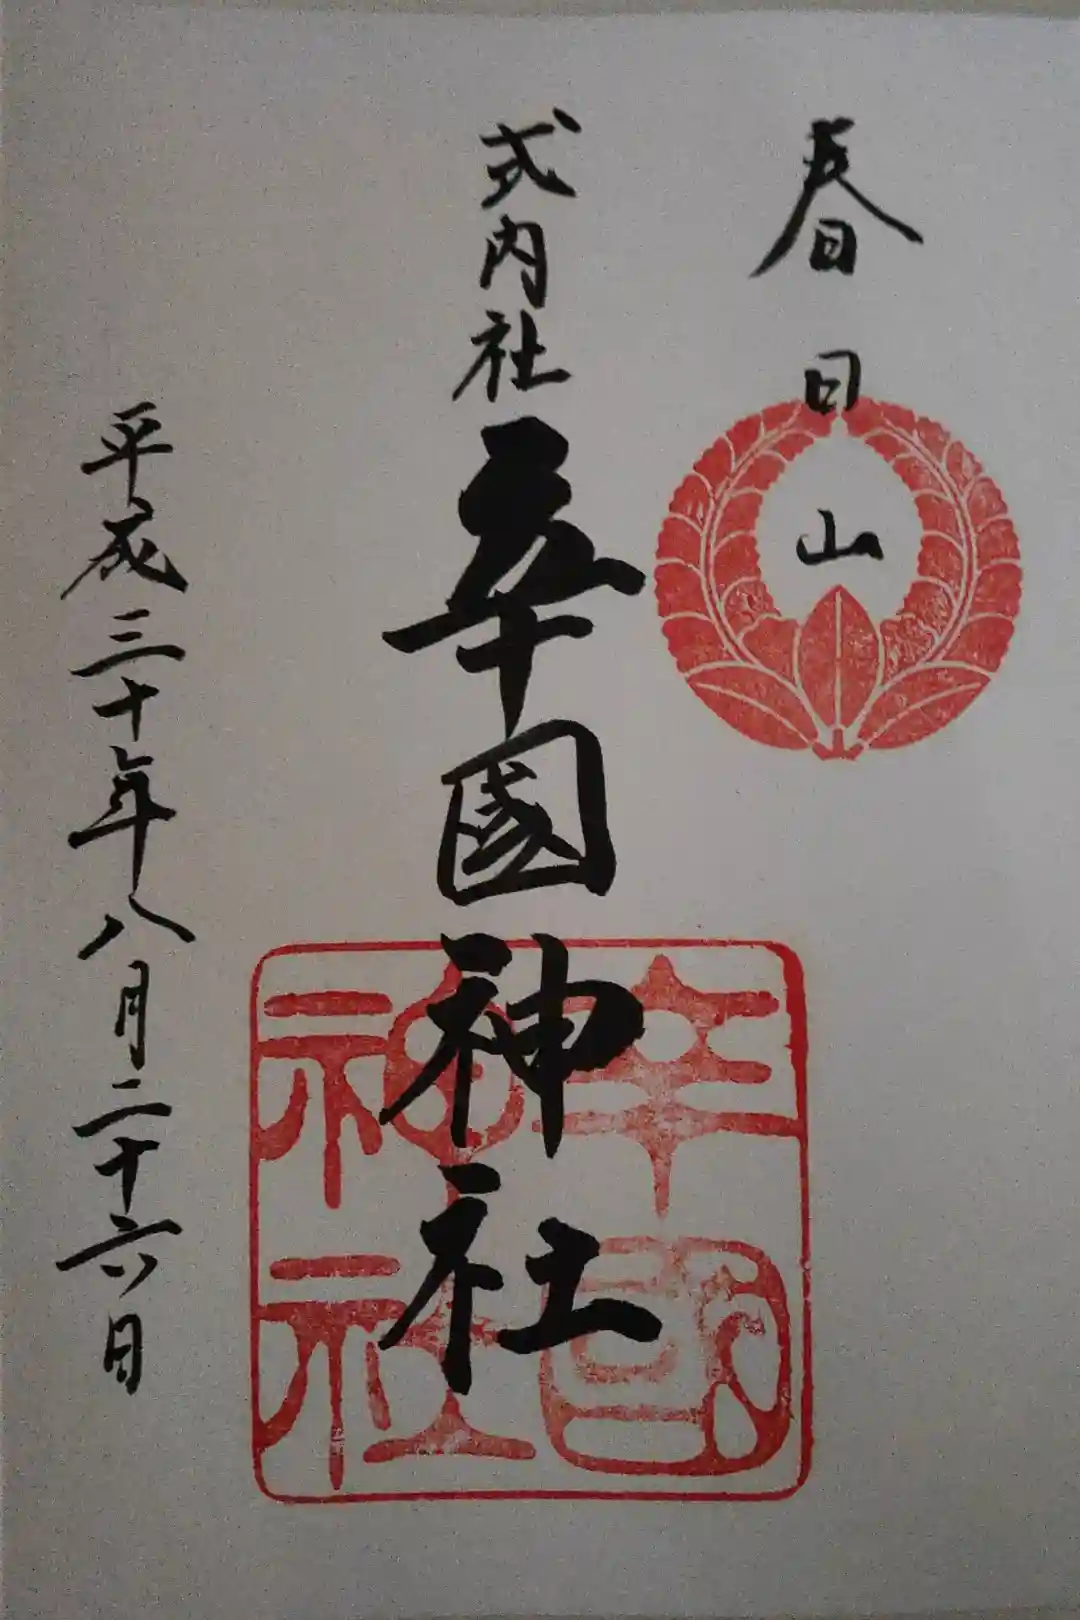 春日山
式内社 辛國神社
平成三十年八月二十六日
辛國神社